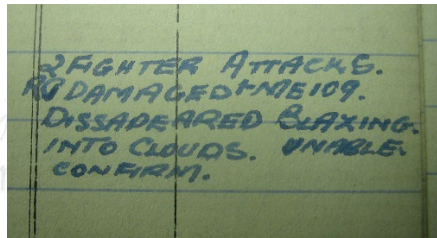 2 FIGHTER ATTACKS.
DAMAGED 1 ME 109.
DISSAPEARED BLAXING.
INTO CLOUDS. UNABLE.
CONFIRM.